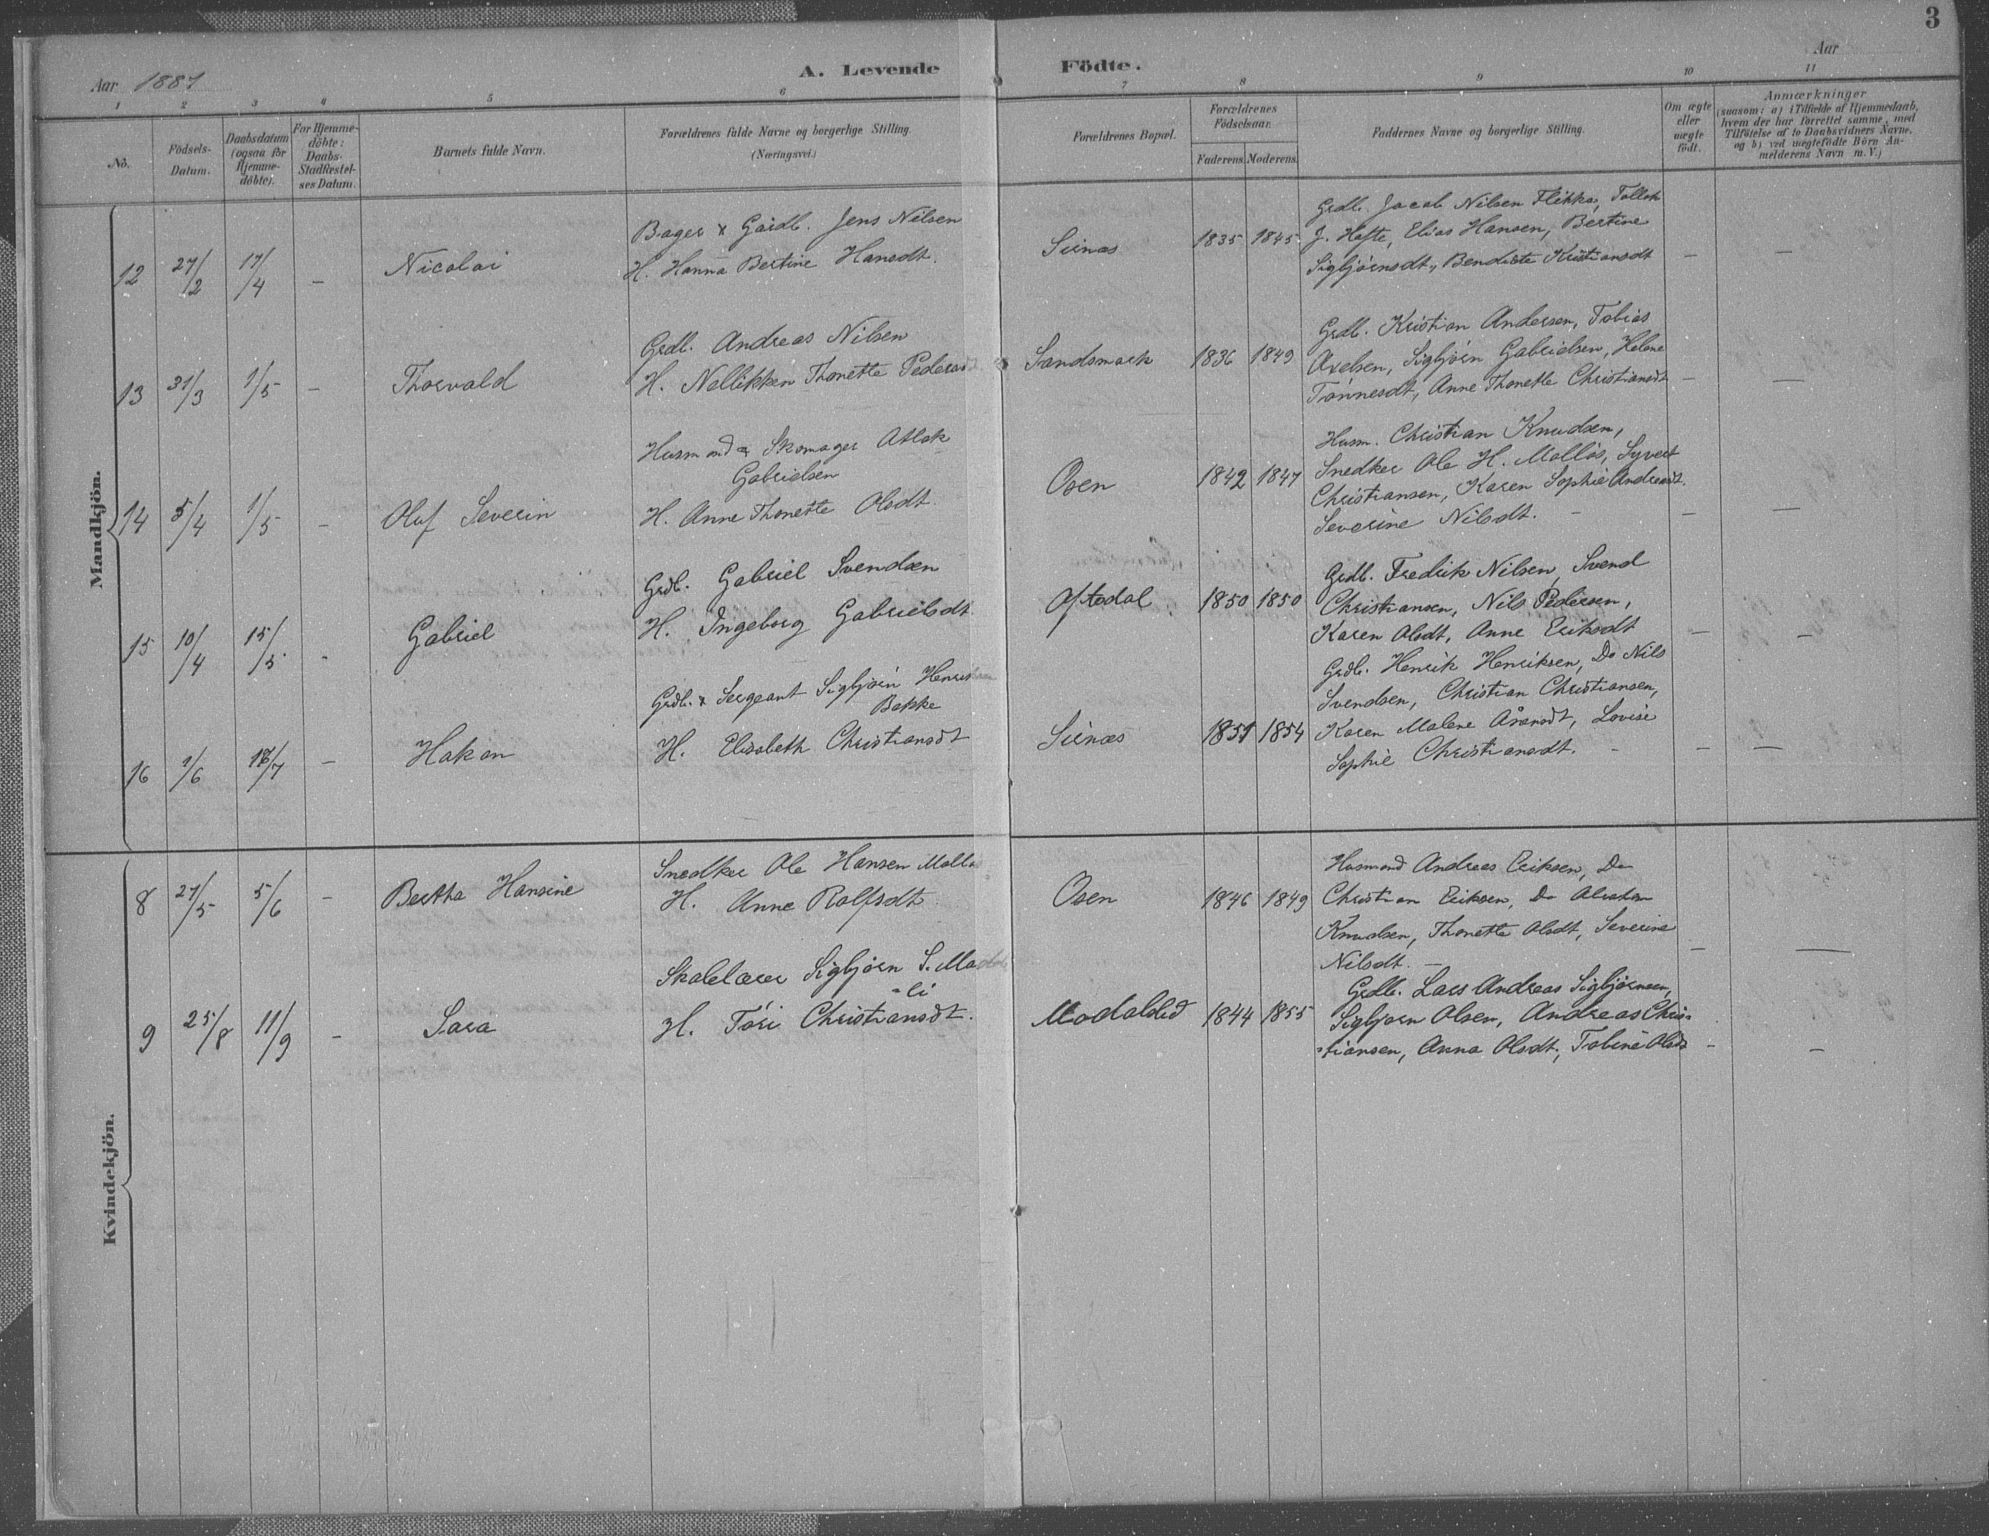 3
Aar 1887
A. Levende Födte.
Aar
1 2 3 4 5 6 7 8 9 10 11
No.
Födsels-Datum.
Daabsdatum (ogsaa för Hjemme-döbte).
For Hjemme-döbte: Daabs-Stadfæstel-ses Datum.
Barnets fulde Navn.
Forældrenes fulde Navne og borgerlige Stilling. (Næringsvei.)
Forældrenes Bopæl.
Forældrenes Födselsaar.
Faderens. Moderens.
Faddernes Navne og borgerlige Stilling.
Om ægte eller uægte födt.
Anmærkninger
(saasom: a) i Tilfælde af Hjemmedaab,
hvem der har forrettet samme, med
Tilföielse af to Daabsvidners Navne.
og b) ved uægtefödte Börn An-
melderens Navn m. V.)
Mandkjön.
12 27/2 17/4 – Nicolai
Bager & Gaardb. Jens Nilsen
H. Hanna Bertine Hansdt.
Sirnæs 1835 1845
Grdb. Jacob Nilsen Flikka, Tollak
J. Hafte, Elias Hansen, Bertine
Sigbjørnsdt., Bendikte Kristiansdt – –
13 31/3 1/5 – Thorvald
Grdb. Andreas Nilsen
H. Nellikken Thonette Pedersdt
Sandsmark 1836 1849
Grdb. Kristian Andersen, Tobias
Axelsen, Sigbjörn Gabrielsen, Helene
Tønnesdt, Anne Thonette Christiansdt – –
14 5/4 1/5 – Oluf Severin
Husmand & Skomager Atlak
Gabrielsen
H. Anne Thonette Olsdt.
Osen 1842 1847
Husm. Christian Knudsen,
Snedker Ole H. Mollås, Syvert
Christiansen, Karen Sophie Andreasdt.
Severine Nilsdt. – – –
15 10/4 15/5 - Gabriel
Grdb. Gabriel Svendsen
H. Ingeborg Gabrielsdt
Oftedal 1850 1850
Grdb. Fredrik Nilsen, Svend
Christiansen, Nils Pedersen,
Karen Olsdt, Anne Eriksdt – –
16 1/6 17/7 – Hakon
Grdb. & Sergeant Sigbjørn Henriksen
Bakke
H. Elisabeth Christiansdt
Sirnæs 1851 1854
Grdb. Henrik Henriksen, Do Nils
Svendsen, Christian Christiansen,
Karen Malene Åsensdt, Lovise
Sophie Christiansdt. – – –
Kvindekjön.
8 27/5 5/6 – Bertha Hansine
Snedker Ole Hansen Mollås
H. Anne Rolfsdt
Osen 1846 1849
Husmand Andreas Eriksen, Do
Christian Eriksen, Do Abraham
Knudsen, Thonette Olsdt, Severine
Nilsdt. – – –
9 25/8 11/9 – Sara
Skolelærer Sigbjørn S. Moda
-li
H. Töri Christiansdt.
Modalsli 1844 1855
Grdb. Lars Andreas Sigbjørnsen,
Sigbjørn Olsen, Andreas Chris-
-tiansen, Anna Olsdt, Tobine Olsdt – –